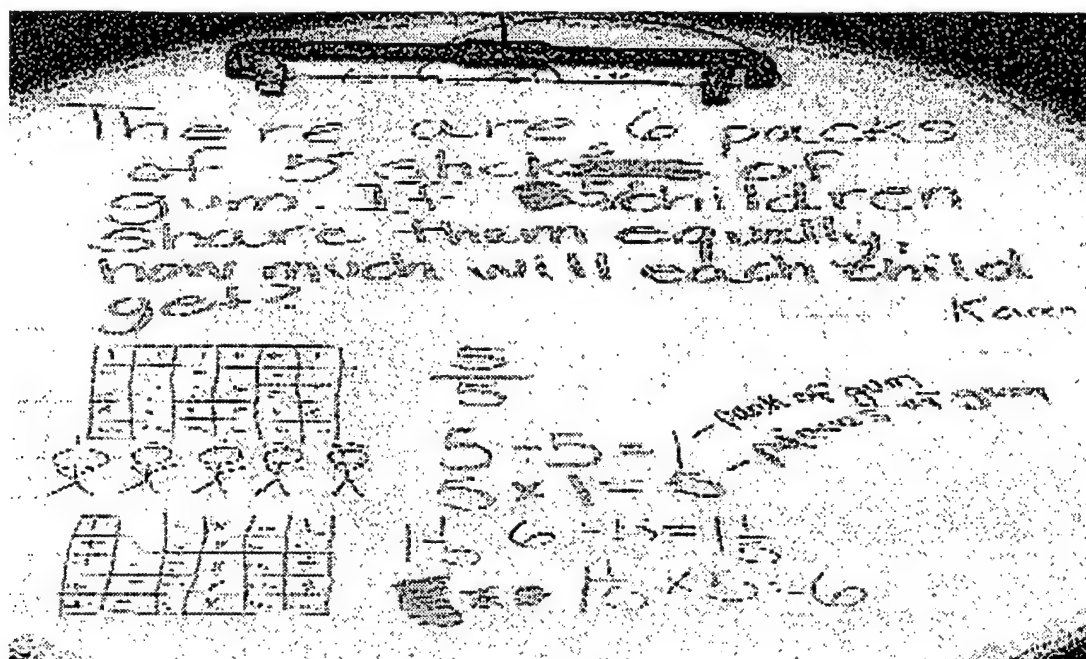 There are 6 packs
of 5 sticks of
gum. If 5 children
share them equally
how much will each child
get?
Karen
5
5
pack of gum
5 ÷ 5 = 1
pieces of gum
5 × 1 = 5
1 1/5 6 ÷ 5 = 1 1/5
1 1/5 × 5 = 6